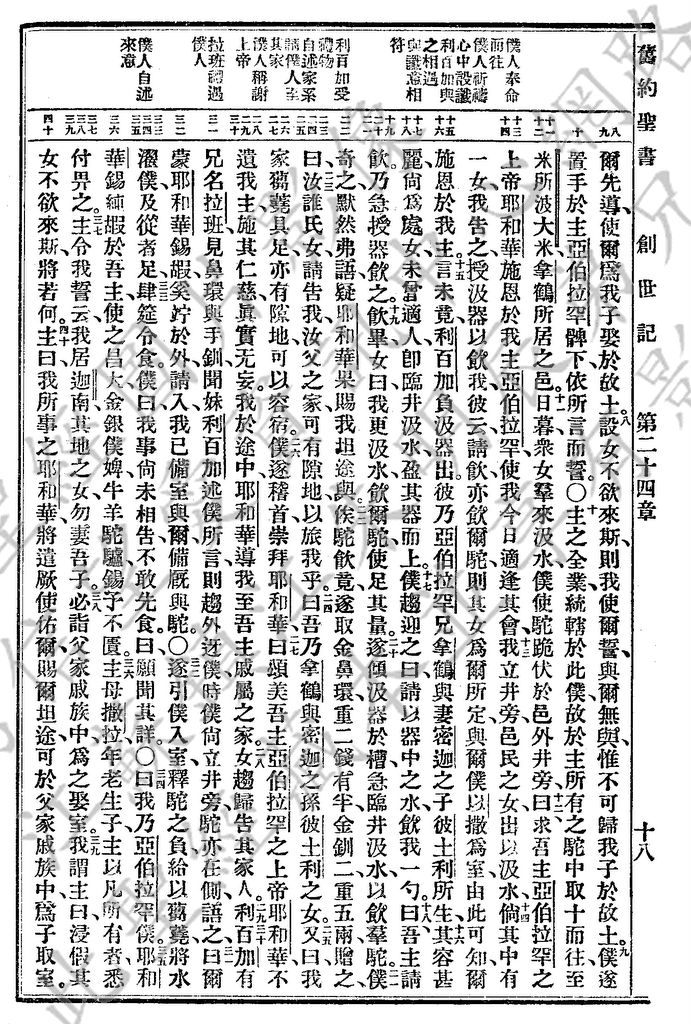 舊約聖書 創世記 第二十四章 十八
僕人奉命而往
僕人祈禱心中設讖
利百加與之相遇與讖意相符
利百加受禮物
自述家系請僕人至其家
僕人稱謝上帝
拉班禮遇僕人
僕人自述來意
爾先導、使爾爲我子娶於故土、八設女不欲來斯、則我使爾誓、與爾無與、惟不可歸我子於故土。九僕遂
置手於主亞伯拉罕髀下、依所言而誓。〇十主之全業、統轄於此僕、故於主所有之駝中取十而往、至
米所波大米拿鶴所居之邑。十一日暮衆女羣來汲水、僕使駝跪伏於邑外井旁、十二曰、求吾主亞伯拉罕之
上帝耶和華、施恩於我主亞伯拉罕、使我今日適逢其會、十三我立井旁、邑民之女出以汲水、十四倘其中有
一女、我告之、授汲器以飲我、彼云請飲、亦飲爾駝、則其女爲爾所定、與爾僕以撒爲室、由此可知爾
施恩於我主。十五言未竟、利百加負汲器出、彼乃亞伯拉罕兄拿鶴與妻密迦之子彼土利所生、十六其容甚
麗、尚爲處女、未曾適人、卽臨井汲水、盈其器而上。十七僕趨迎之曰、請以器中之水飲我一勺、十八曰、吾主請
飲、乃急授器飲之。十九飲畢、女曰、我更汲水飲爾駝、使足其量、二十遂傾汲器於槽、急臨井汲水、以飲羣駝、二一僕
奇之、默然弗語、疑耶和華果賜我坦途與、二二俟駝飲竟、遂取金鼻環重二錢有半、金釧二、重五兩、贈之、
二三曰、汝誰氏女、請告我、汝父之家、可有隙地以旅我乎。二四曰、吾乃拿鶴與密迦之孫、彼土利之女、二五又曰、我
家芻蕘具足、亦有隙地可以容宿。二六僕遂稽首崇拜耶和華、二七曰、頌美吾主亞伯拉罕之上帝耶和華、不
遺我主、施其仁慈眞實无妄、我於途中、耶和華導我至吾主戚屬之家。二八女趨歸、告其家人。二九三十利百加有
兄名拉班、見鼻環與手釧、聞妹利百加述僕所言、則趨外迓僕、時僕尚立井旁、駝亦在側、三一語之曰、爾
蒙耶和華錫嘏、奚竚於外、請入、我已備室與爾、備廐與駝。〇三二遂引僕入室、釋駝之負、給以芻蕘、將水
濯僕及從者足、三三肆筵令食、僕曰、我事尚未相告、不敢先食、曰、願聞其詳。〇三四曰、我乃亞伯拉罕僕、三五耶和
華錫純嘏於吾主、使之昌大、金銀僕婢牛羊駝驢、錫予不匱。三六主母撒拉年老生子、主以凡所有者、悉
付畀之。三七主令我誓云、我居迦南、其地之女、勿妻吾子、三八必詣父家戚族中爲之娶室。三九我謂主曰、浸假其
女不欲來斯、將若何、四十主曰、我所事之耶和華、將遣厥使佑爾、賜爾坦途、可於父家戚族中爲子取室。